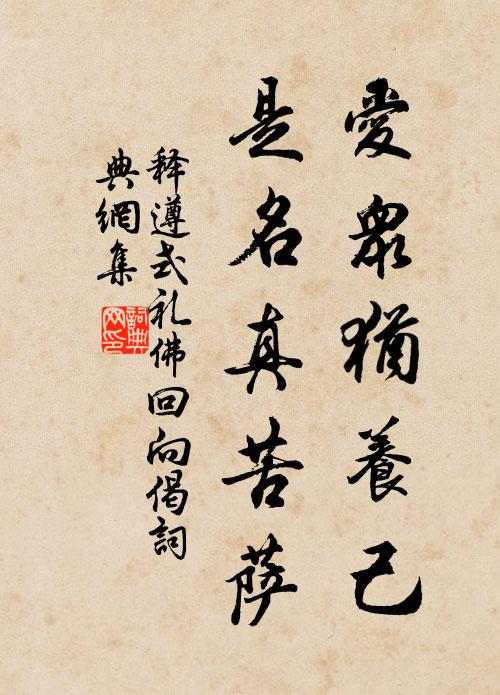 愛眾猶養己
是名真苦薩
释遵式礼佛回向偈詞
典網集
詞典网印